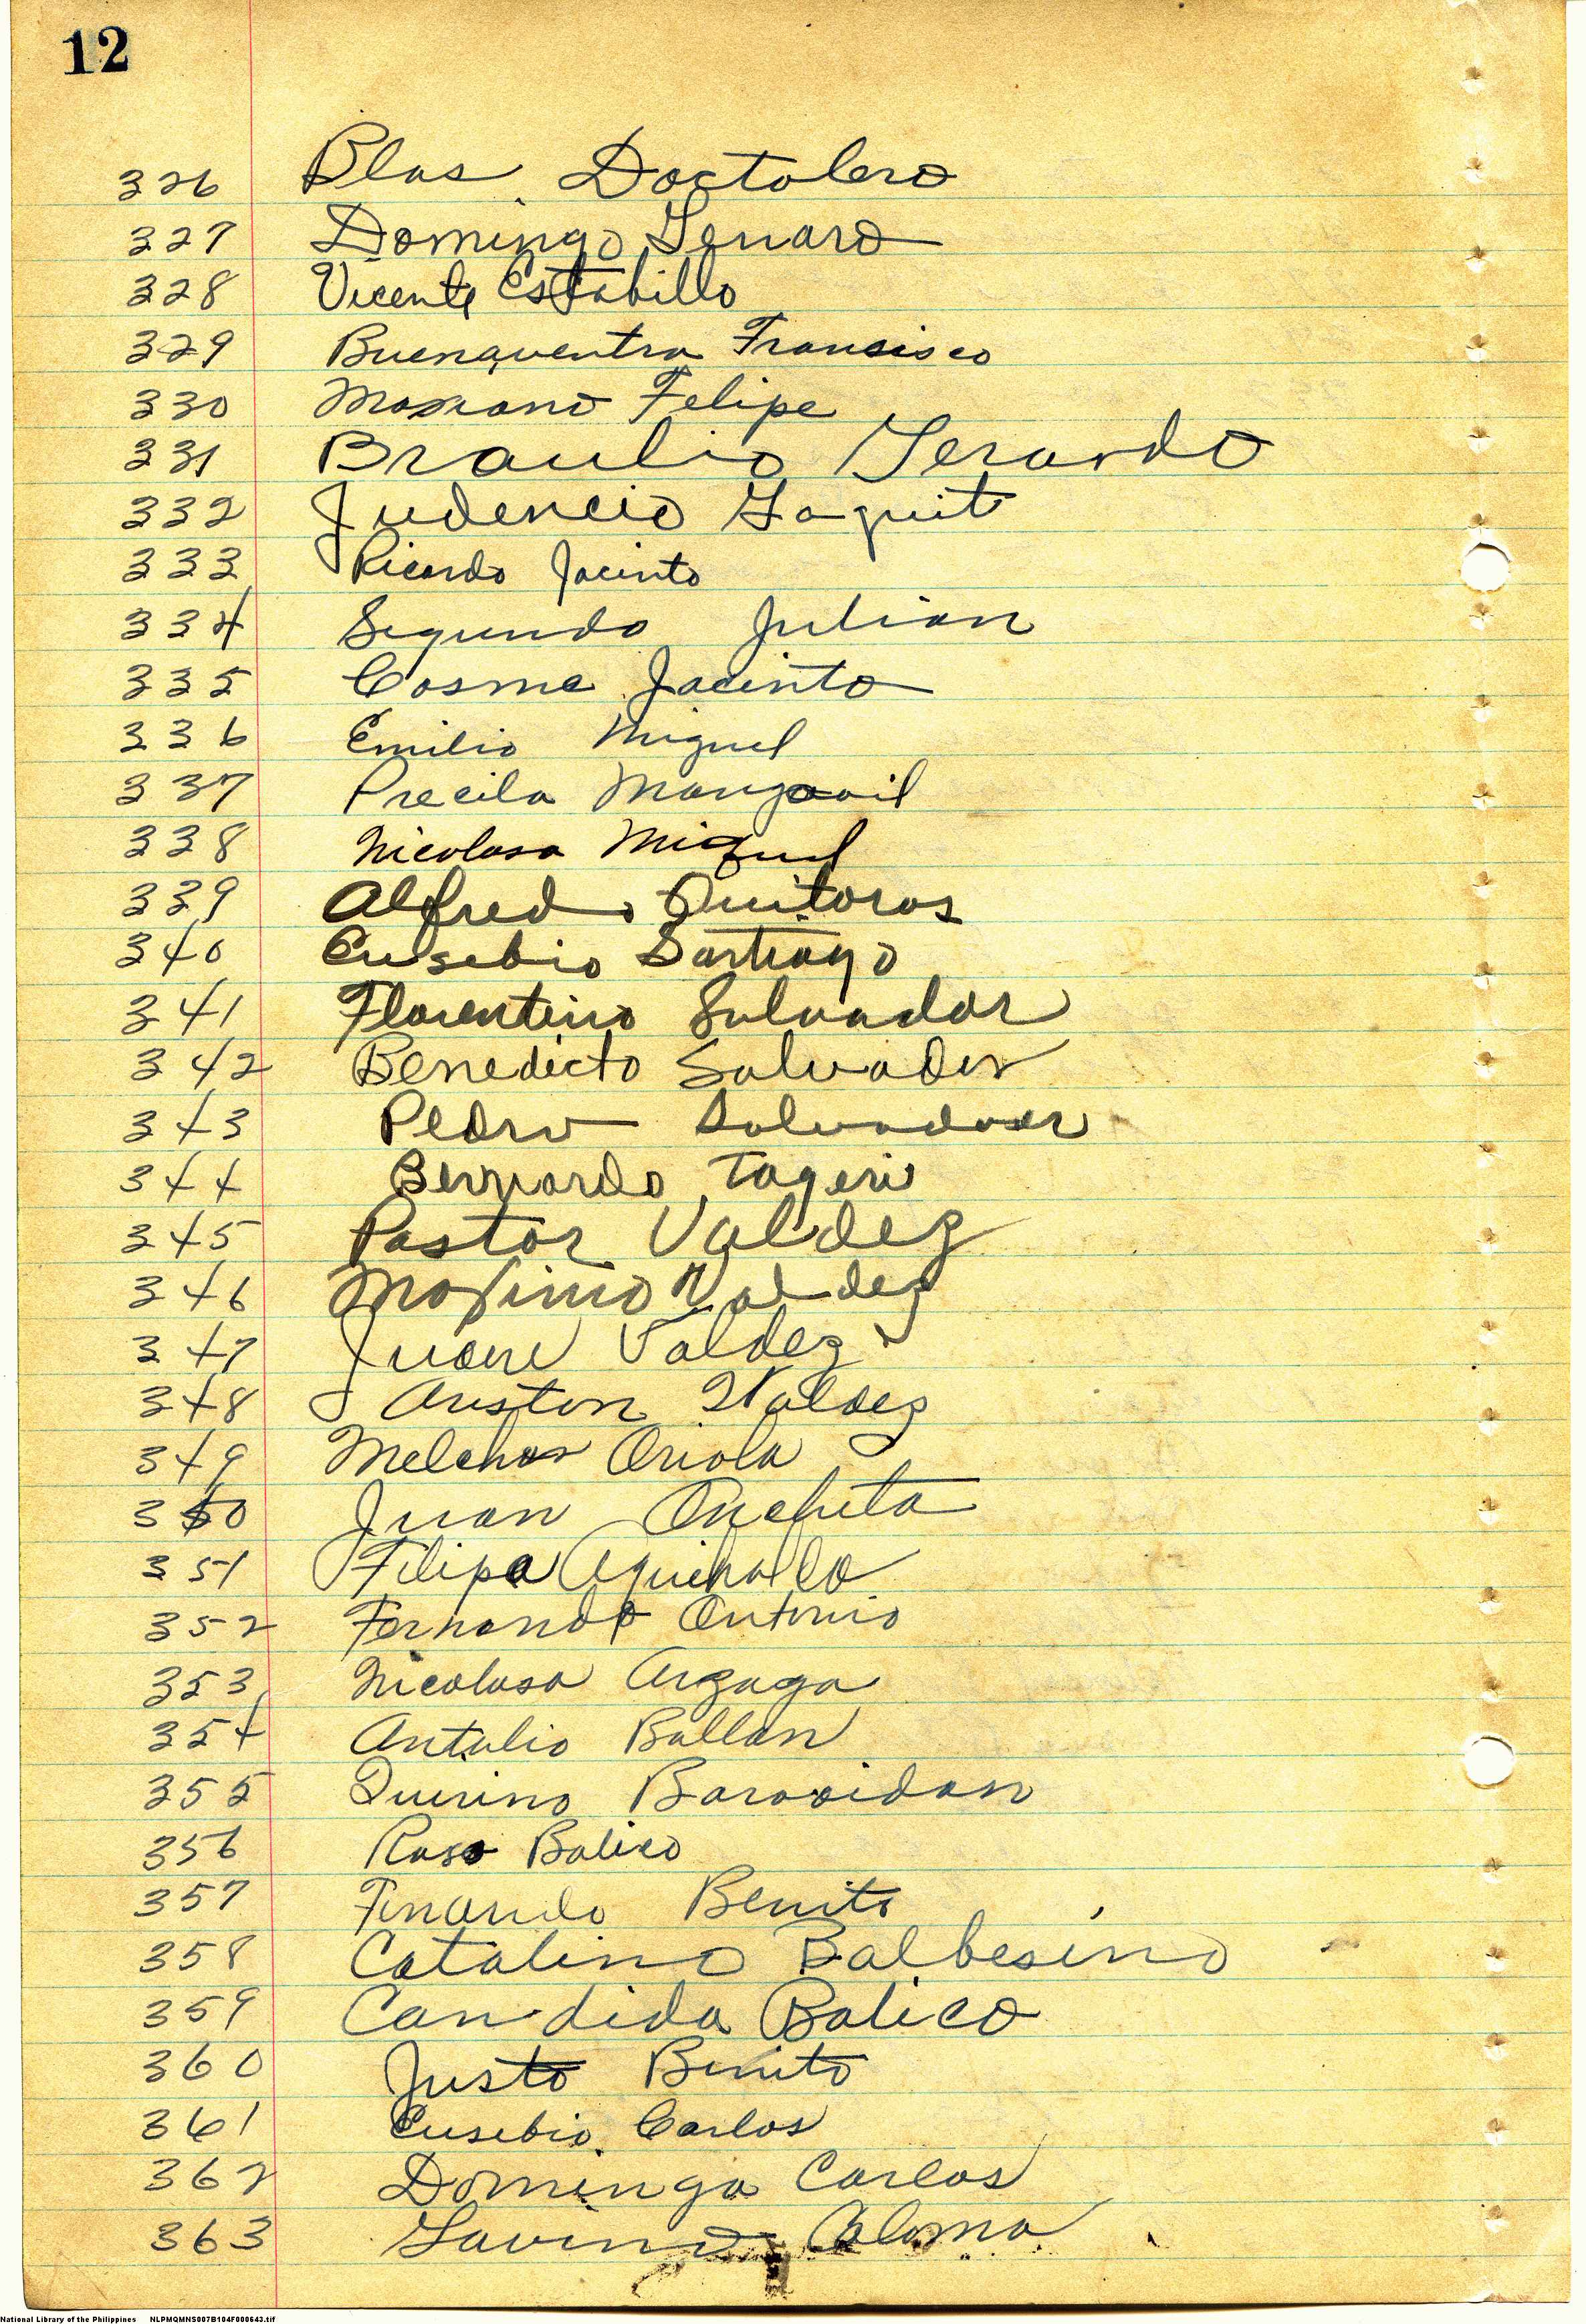 12
326 Blas Doctolero
327 Domingo Genaro
328 Vicente Estabillo
329 Buenaventra Fransisco
330 Mariano Felipe
331 Braulio Gerardo
332 Judencio Gaquit
333 Ricardo Jacinto
334 Segundo Julian
335 Cosme Jacinto
336 Emilio Miguel
337 Precila
338 Nicolasa Miguel
339 Alfredo Quitoras
340 Eusebio Santiago
341 Florentino Salvador
342 Benedicto Salvador
343 Pedro
344 Bernardo
345 Pastor Valdez
346 Maximo Valdez
347 Juan Valdez
348 Ariston Valdez
349 Melchor Oriola
350 Juan
351
352 Fernando Antonio
353 Nicolasa Arzaga
354 Antulio Ballan
355 Quirino
356 Balico
357 Benito
358 Catalino Balbesino
359 Candida Balico
360 Justo Benito
361 Eusebio Carlos
362 Dominga Carlos
363 Coloma
National Library of the Philippines NLPMQMNS007B104F000643.tif